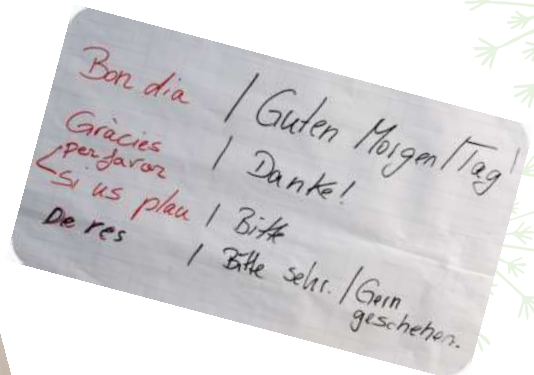 Bon dia / Guten Morgen/Tag!
Gràcies / Danke!
per favor
Si us plau / Bitte
De res / Bitte sehr. / Gern
geschehen.